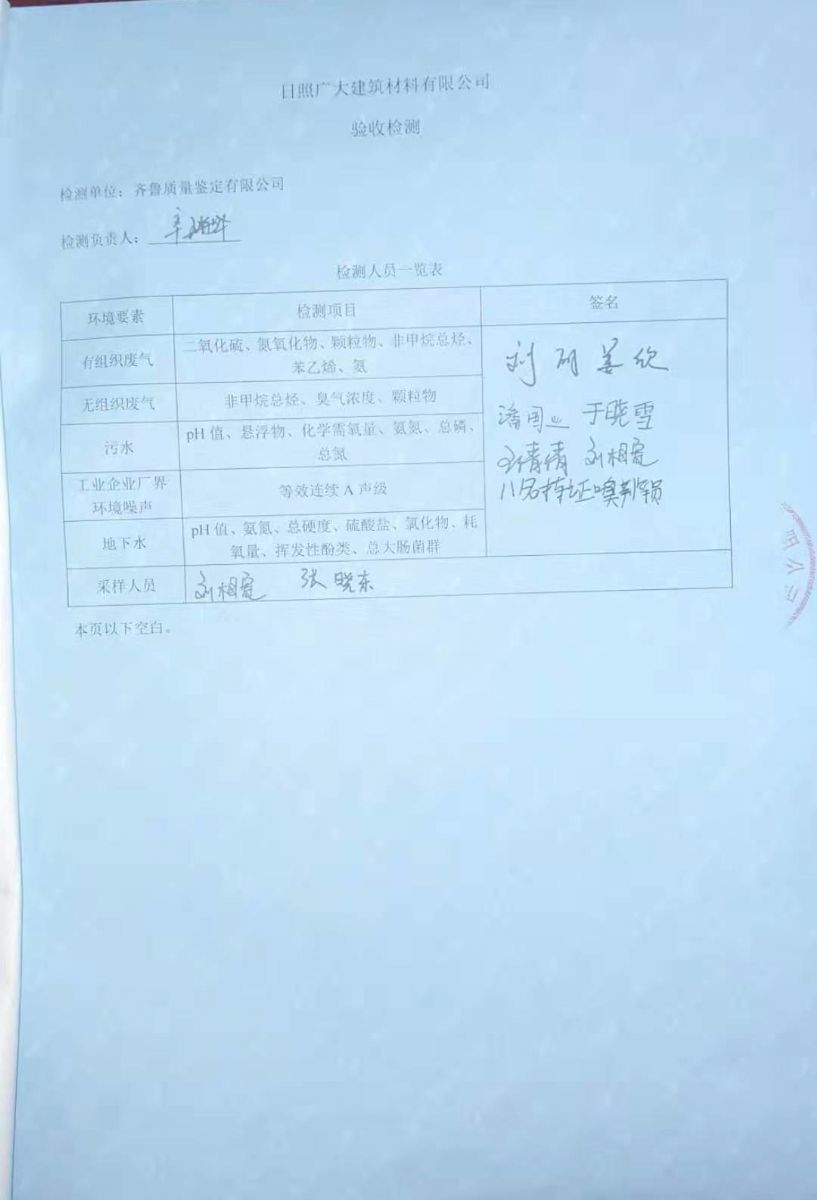 日照广大建筑材料有限公司
验收检测
检测单位：齐鲁质量鉴定有限公司
检测负责人：
检测人员一览表
环境要素 检测项目 签名
有组织废气 二氧化硫、氮氧化物、颗粒物、非甲烷总烃、
苯乙烯、氨
无组织废气 非甲烷总烃、臭气浓度、颗粒物
污水 pH 值、悬浮物、化学需氧量、氨氮、总磷、
总氮
工业企业厂界
环境噪声
等效连续 A 声级
地下水 pH 值、氨氮、总硬度、硫酸盐、氯化物、耗
氧量、挥发性酚类、总大肠菌群
刘 姜欣
潘国 于晓雪
青倩 刘相宽
八名持证嗅辨员
采样人员 刘相宽 张晓东
本页以下空白。